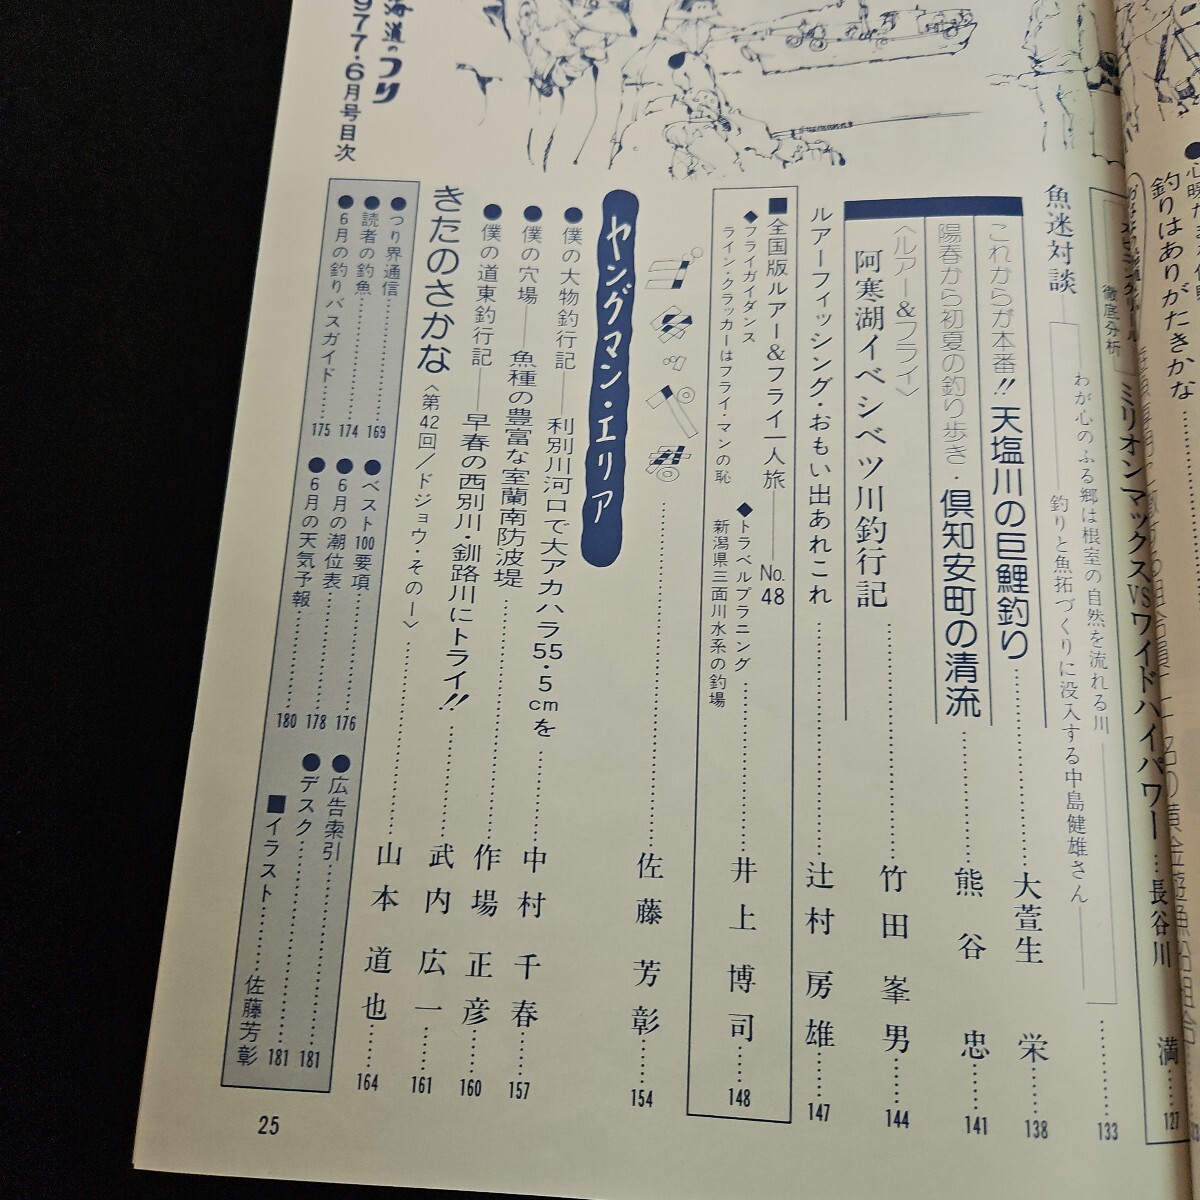 釣りはありがたきかな
徹底分析
ミリオンマックスVSワイドハイパワー…長谷川 満……127
魚迷対談
わが心のふる郷は根室の自然を流れる川
釣りと魚拓づくりに没入する中島健雄さん
……133
これからが本番!! 天塩川の巨鯉釣り……大萱生 栄……138
陽春から初夏の釣り歩き・倶知安町の清流……熊谷 忠……141
〈ルアー&フライ〉
阿寒湖イベシベツ川釣行記……竹田峯男……144
ルアーフィッシング・おもい出あれこれ……辻村房雄……147
■全国版ルアー&フライ一人旅――No.48
◆フライガイダンス
ライン・クラッカーはフライ・マンの恥
◆トラベルプラニング
新潟県三面川水系の釣場
井上博司……148
ミスッペ君……佐藤芳彰……154
ヤングマン・エリア
●僕の大物釣行記――利別川河口で大アカハラ55・5cmを……中村千春……157
●僕の穴場――魚種の豊富な室蘭南防波堤……作場正彦……160
●僕の道東釣行記――早春の西別川・釧路川にトライ!!……武内広一……161
きたのさかな〈第42回/ドジョウ・その一〉……山本道也……164
●つり界通信……169
●読者の釣魚……174
●6月の釣りバスガイド……175
●ベスト100要項……176
●6月の潮位表……178
●6月の天気予報……180
●広告索引……181
●デスク……181
■イラスト……佐藤芳彰
海道のつり
977・6月号目次
25